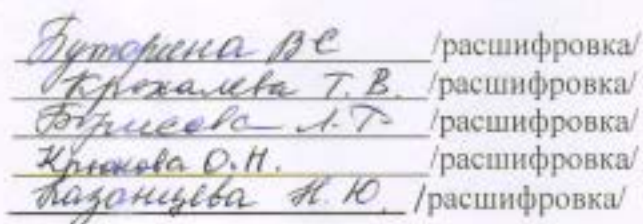 Буторина В С /расшифровка/
Крохалева Т. В. /расшифровка/
Борисова Л. Т /расшифровка/
Крюкова О. Н. /расшифровка/
Казанцева Н. Ю. /расшифровка/